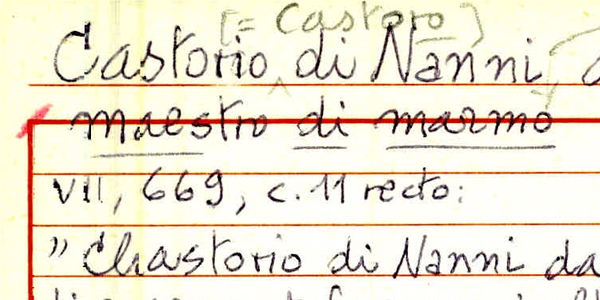 [= Castoro]
Castorio di Nanni
maestro di marmo
VII, 669, c. 11 recto:
"Chastorio di Nanni da